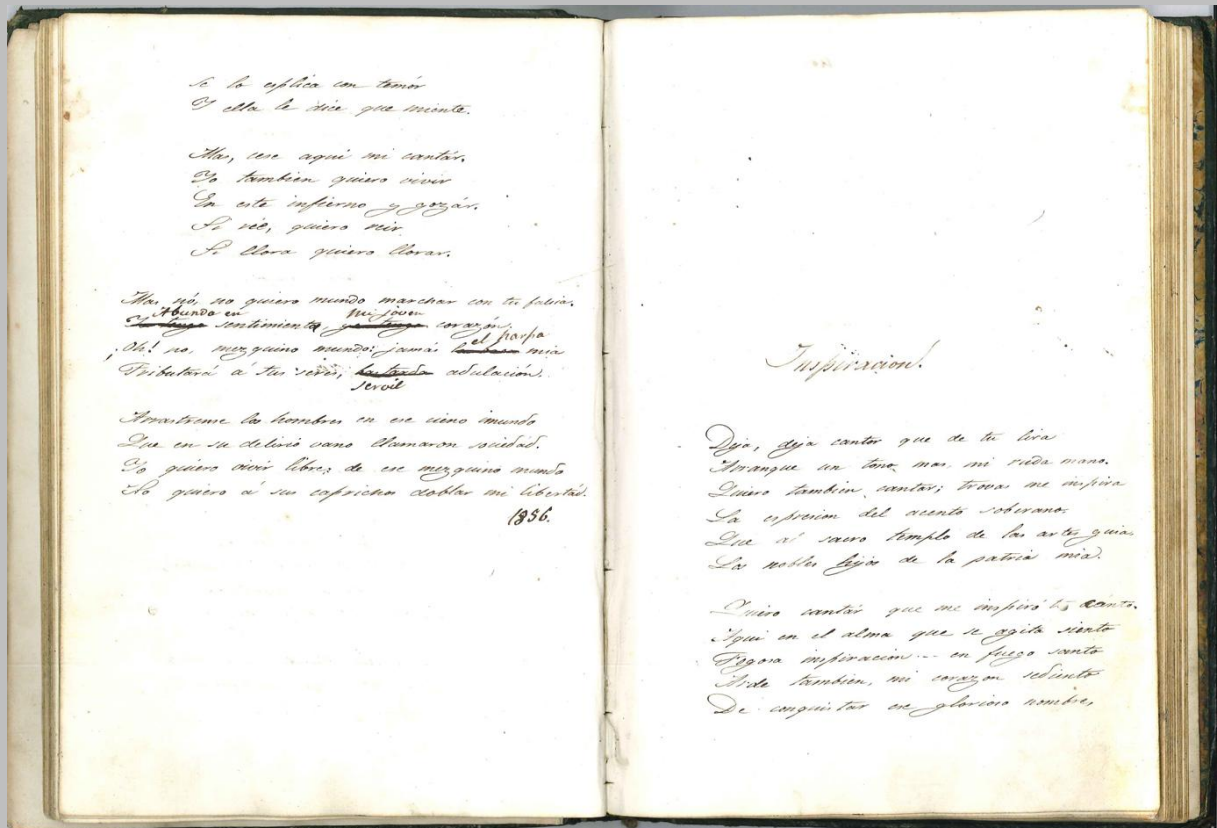 Se lo esplica con temór
Y ella le dice que miente.
Mas, cese aqui mi cantár.
Yo tambien quiero vivir
En este infierno y gozár.
Si rie, quiero reir
Si llora quiero llorar.
Mas nó, no quiero mundo marchar con tu falsia.
Abundo en mi joven
sentimiento, corazón;
el harpa
¡Oh! no, mezquino mundo; jamás mia
Tributará á tus seres, bastarda adulación.
servil
Arrastrense los hombres en ese cieno imundo
Que en su delirio vano llamaron sociedad.
Yo quiero vivir libre; de ese mezquino mundo
No quiero á sus caprichos doblar mi libertad.
1856.
Inspiracion!
Deja, deja cantor que de tu lira
Arranque un tono mas mi ruda mano.
Quiero tambien cantar; trovas me inspira
La espresion del acento soberano.
Que al sacro templo de las artes guia
Los nobles hijos de la patria mia.
Quiero cantár que me inspiró tu acento.
Aqui en el alma que se agita siento
Fogosa inspiracion --- en fuego santo
Arde tambien, mi corazon sediento
De conquistar ese glorioso nombre,